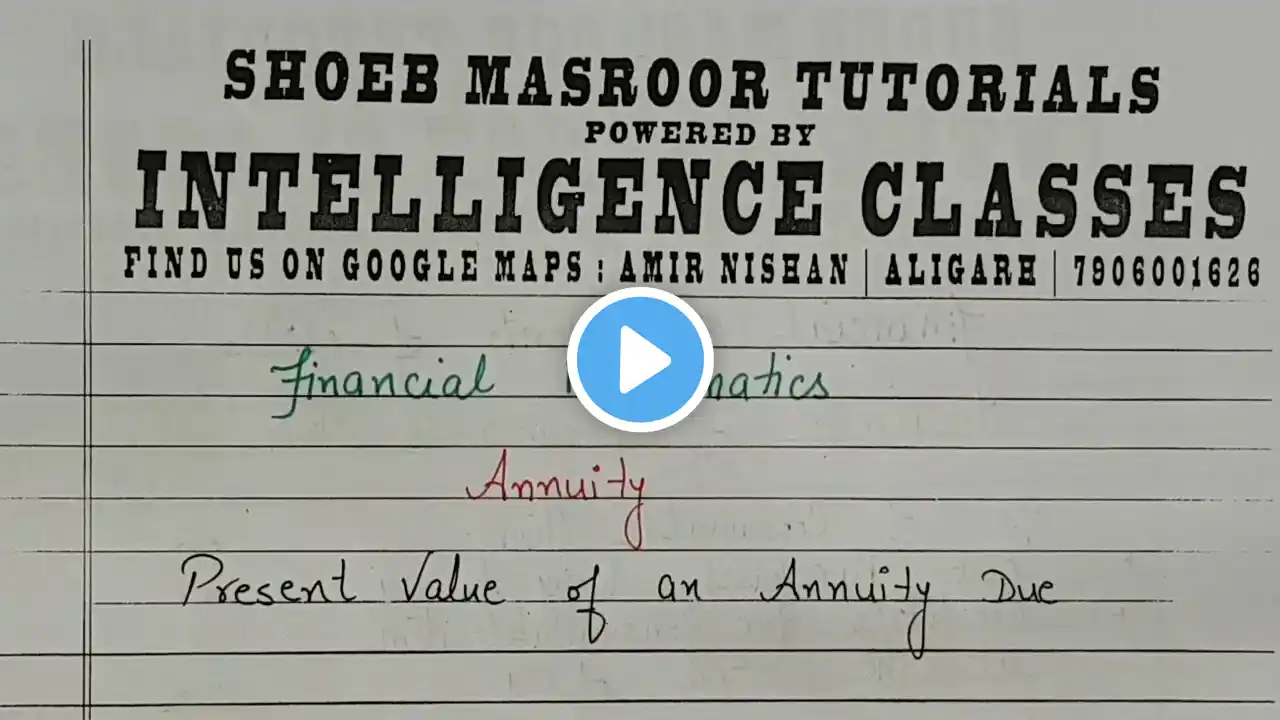 SHOEB MASROOR TUTORIALS
POWERED BY
INTELLIGENCE CLASSES
FIND US ON GOOGLE MAPS : AMIR NISHAN | ALIGARH | 7906001626
Financial
Annuity
Present Value of an Annuity Due